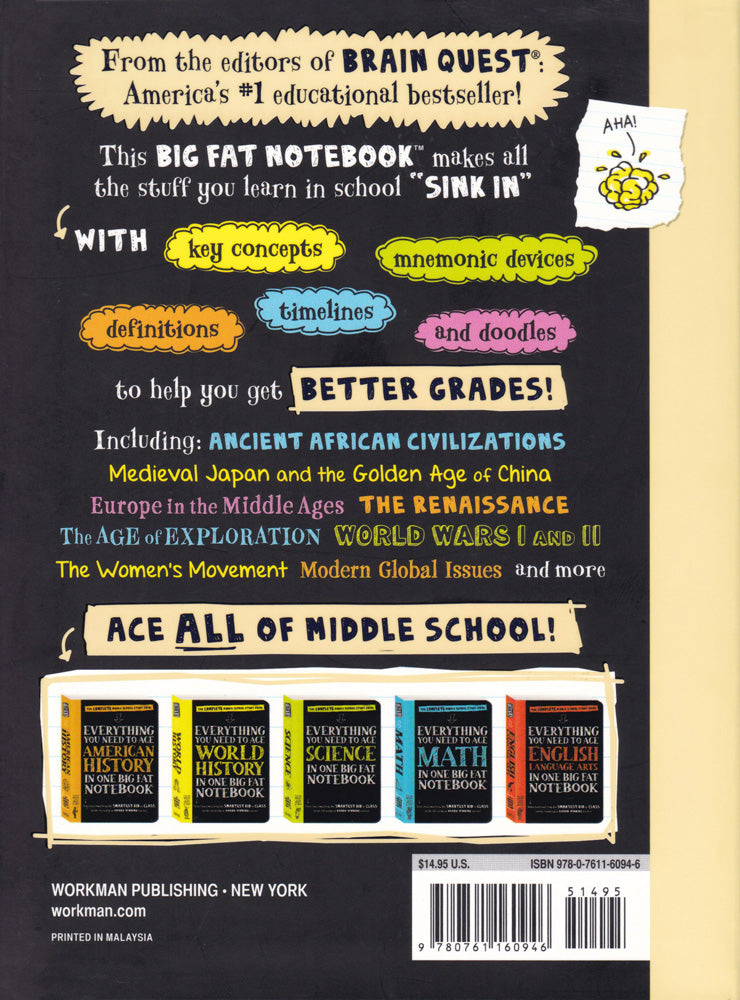 From the editors of BRAIN QUEST®:
America's #1 educational bestseller!
AHA!
This BIG FAT NOTEBOOK™ makes all
the stuff you learn in school "SINK IN"
WITH key concepts
mnemonic devices
definitions
timelines
and doodles
to help you get BETTER GRADES!
Including: ANCIENT AFRICAN CIVILIZATIONS
Medieval Japan and the Golden Age of China
Europe in the Middle Ages THE RENAISSANCE
The AGE of EXPLORATION WORLD WARS I AND II
The Women's Movement Modern Global Issues and more
ACE ALL OF MIDDLE SCHOOL!
AMERICAN HISTORY
THE COMPLETE MIDDLE SCHOOL STUDY GUIDE
EVERYTHING
YOU NEED TO ACE
AMERICAN
HISTORY
IN ONE BIG FAT
NOTEBOOK
WORLD HISTORY
THE COMPLETE MIDDLE SCHOOL STUDY GUIDE
EVERYTHING
YOU NEED TO ACE
WORLD
HISTORY
IN ONE BIG FAT
NOTEBOOK
SCIENCE
THE COMPLETE MIDDLE SCHOOL STUDY GUIDE
EVERYTHING
YOU NEED TO ACE
SCIENCE
IN ONE BIG FAT
NOTEBOOK
MATH
THE COMPLETE MIDDLE SCHOOL STUDY GUIDE
EVERYTHING
YOU NEED TO ACE
MATH
IN ONE BIG FAT
NOTEBOOK
ENGLISH
THE COMPLETE MIDDLE SCHOOL STUDY GUIDE
EVERYTHING
YOU NEED TO ACE
ENGLISH
LANGUAGE ARTS
IN ONE BIG FAT
NOTEBOOK
WORKMAN PUBLISHING • NEW YORK
workman.com
PRINTED IN MALAYSIA
$14.95 U.S.
ISBN 978-0-7611-6094-6
51495
9 780761 160946